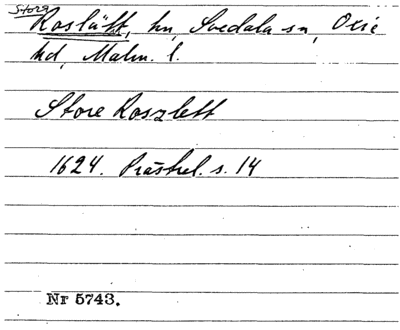 Stora
Roslätt, hn, Svedala sn, Oxie
hd, Malm. l.
Store Roszlett
1624. Prästrel. s. 14
Nr 5743.